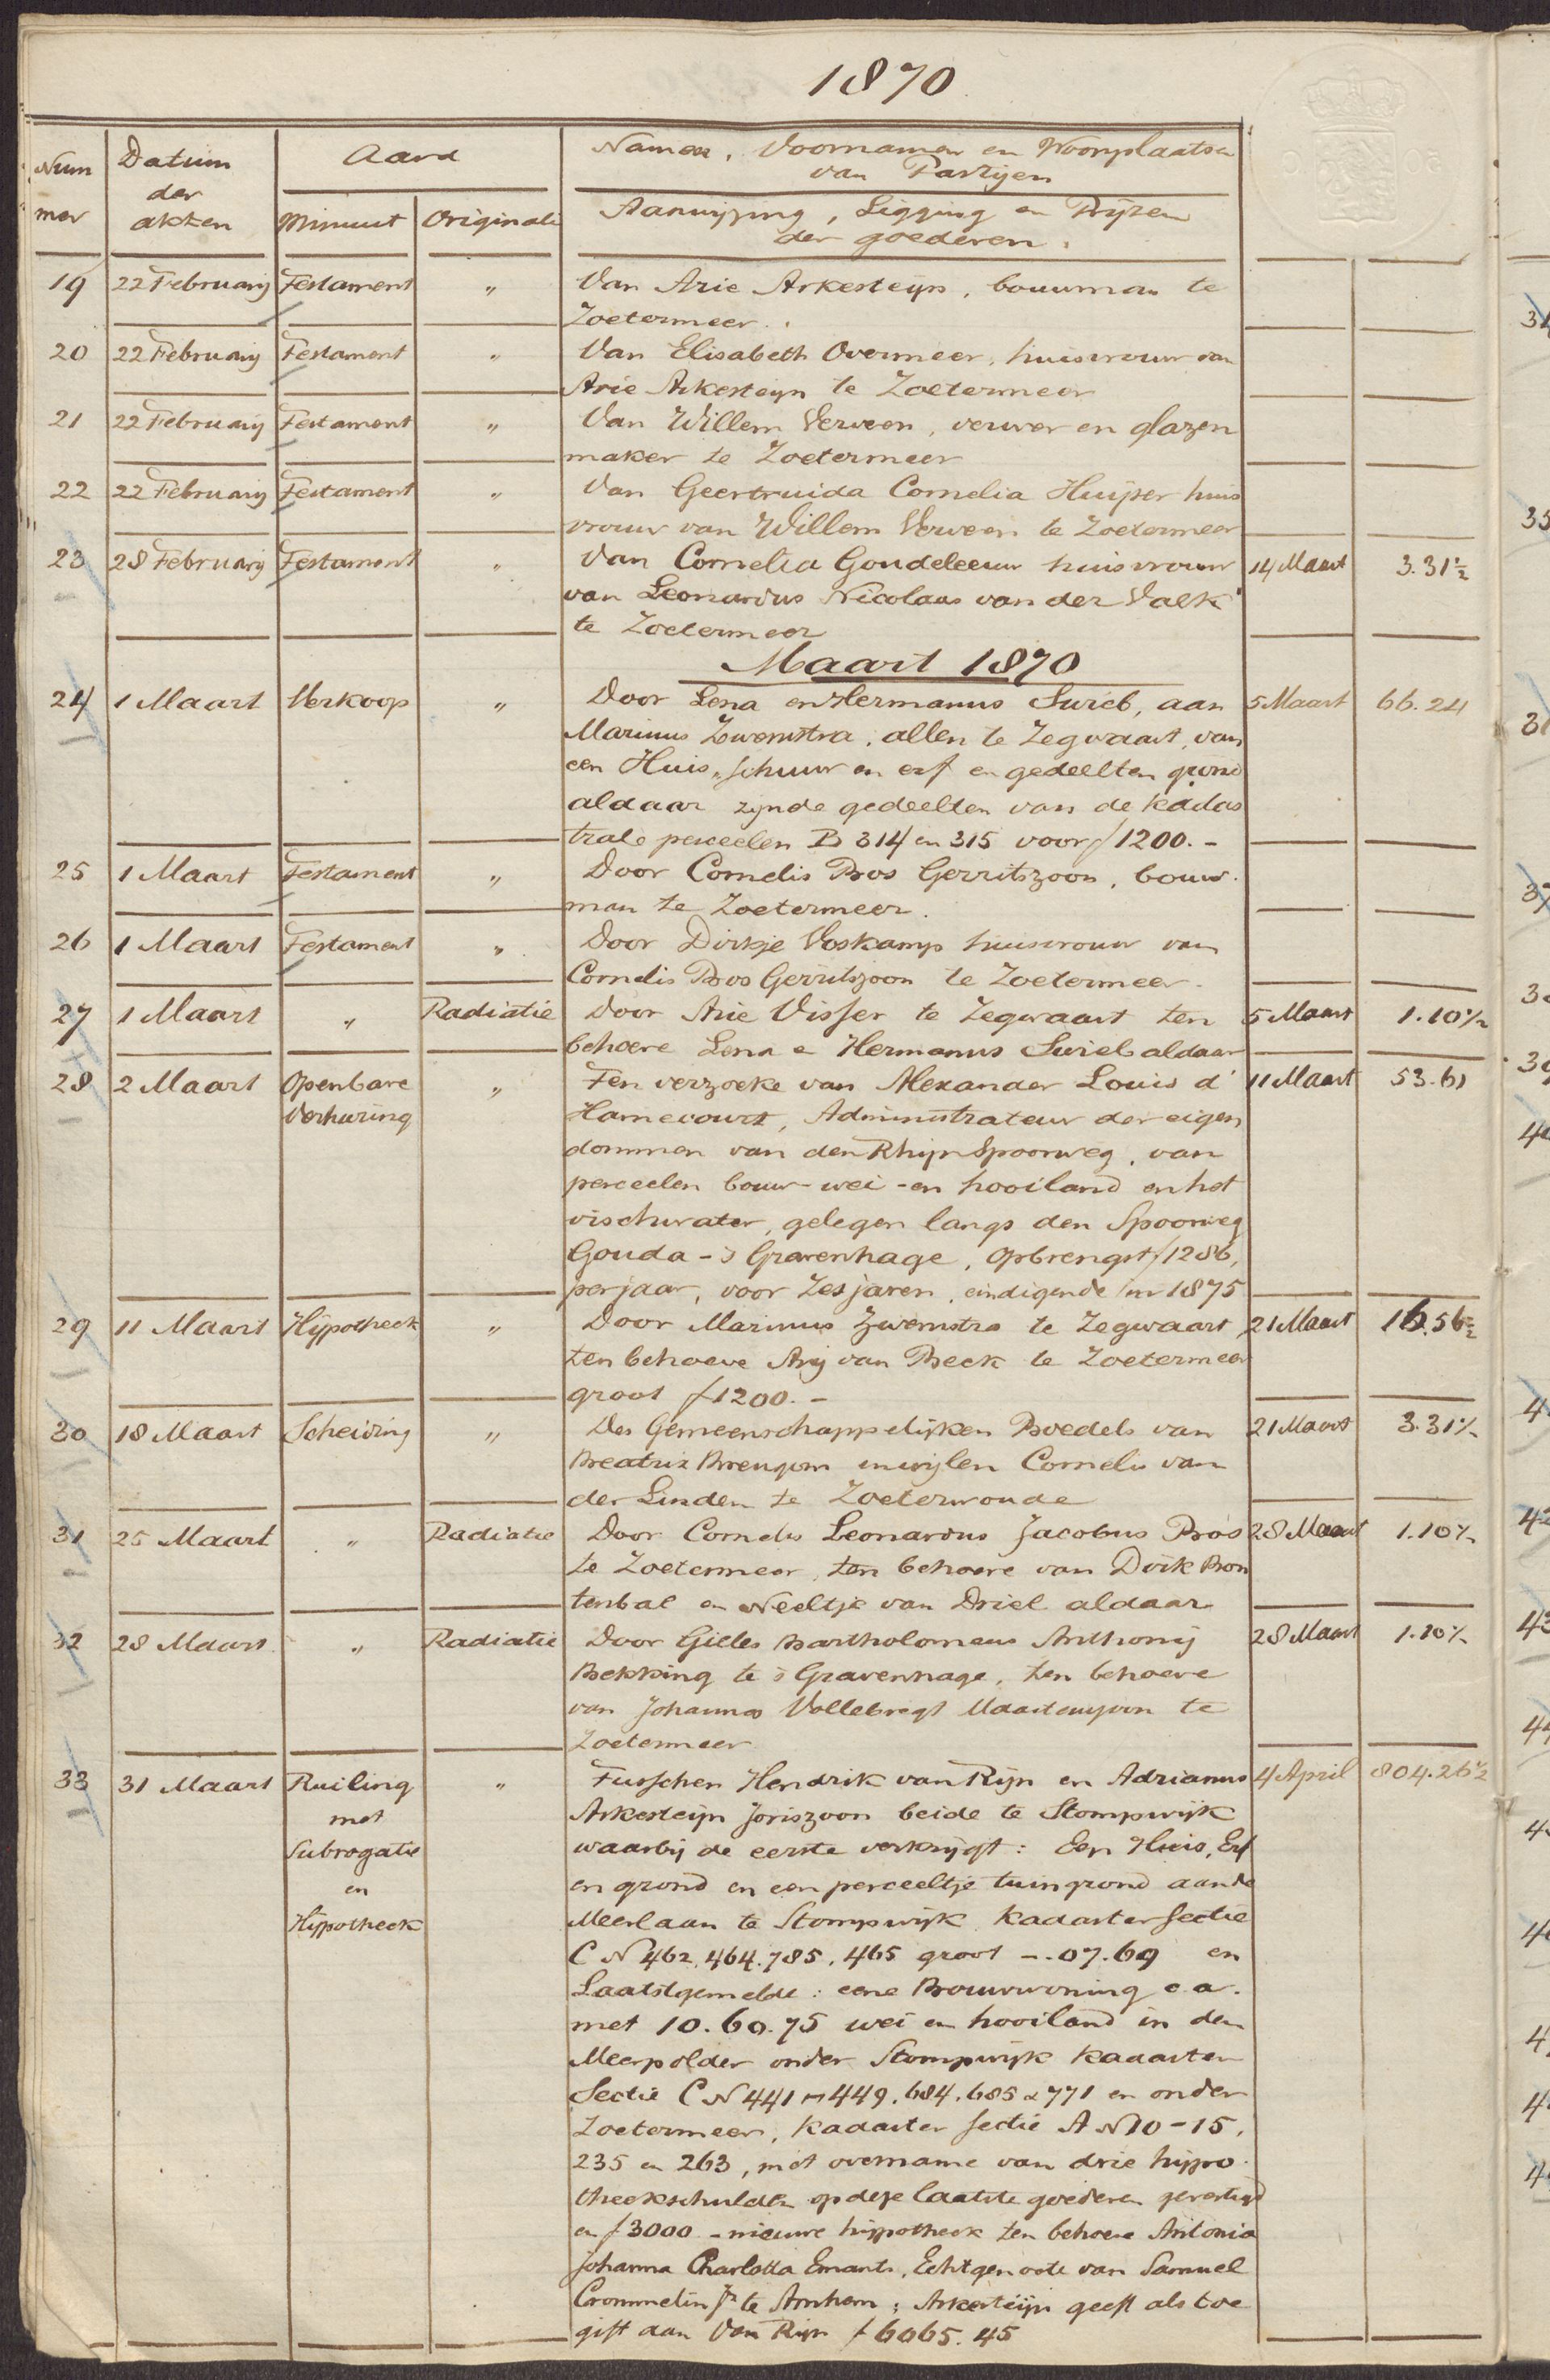 1870
Nummer | Datum der akten | Aard | Namen, Voornamen en Woonplaatsen van Partijen
Minuut | Originali | Aanwijzing, Ligging en Prijzen der goederen.
19 | 22 Februarij | Testament | " | Van Arie Arkesteijn, bouwman te
Zoetermeer.
20 | 22 Februarij | Testament | " | Van Elisabeth Overmeer, huisvrouw van
Arie Arkesteijn te Zoetermeer
21 | 22 Februarij | Testament | " | Van Willem Verveen, verwer en glazen
maker te Zoetermeer
22 | 22 Februarij | Testament | " | Van Geertruida Cornelia Huijser huis
vrouw van Willem Verveen te Zoetermeer
23 | 28 Februarij | Testament | " | Van Cornelia Goudeleeuw huisvrouw | 14 Maart | 3.31½
van Leonardus Nicolaas van der Valk
te Zoetermeer
Maart 1870
24 | 1 Maart | Verkoop | " | Door Lena en Hermanus Swieb, aan | 5 Maart | 66.24
Marinus Zwemstra, allen te Zegwaart, van
een Huis, schuur en erf en gedeelten grond
aldaar zijnde gedeelten van de kadas
trale perceelen B 314 en 315 voor f 1200.-
25 | 1 Maart | Testament | " | Door Cornelis Bos Gerritszoon, bouw-
man te Zoetermeer.
26 | 1 Maart | Testament | " | Door Dirkje Voskamp huisvrouw van
Cornelis Bos Gerritszoon te Zoetermeer.
27 | 1 Maart | " | Radiatie | Door Arie Visser te Zegwaart ten | 5 Maart | 1.10½
behoeve Lena e Hermanus Swieb aldaar
28 | 2 Maart | Openbare | " | Ten verzoeke van Alexander Louis d' | 11 Maart | 53.61
Verhuring | Hamecourt, Administrateur der eigen
dommen van den Rhijn Spoorweg, van
perceelen bouw- wei- en hooiland en het
vischwater, gelegen langs den Spoorweg
Gouda - 's Gravenhage, Opbrengst f 1286,
per jaar, voor Zes jaren, eindigende in 1875
29 | 11 Maart | Hijpotheek | " | Door Marinus Zwemstra te Zegwaart | 21 Maart | 16.56½
ten behoeve Arij van Beek te Zoetermeer
groot f 1200.-
30 | 18 Maart | Scheiding | " | Des Gemeenschappelijken Boedels van | 21 Maart | 3.31½
Beatrix Breugom en wijlen Cornelis van
der Linden te Zoeterwoude
31 | 25 Maart | " | Radiatie | Door Cornelis Leonardus Jacobus Bos | 28 Maart | 1.10½
te Zoetermeer, ten behoeve van Dirk Bon
tenbal en Neeltje van Driel aldaar
32 | 28 Maart | " | Radiatie | Door Gilles Bartholomeus Anthonij | 28 Maart | 1.10½
Bekking te 's Gravenhage, ten behoeve
van Johannes Vollebregt Maartenszoon te
Zoetermeer
33 | 31 Maart | Ruiling | " | Tusschen Hendrik van Rijn en Adrianus | 4 April | 804.26½
met | Arkesteijn Joriszoon beide te Stompwijk
Subrogatie | waarbij de eerste verkrijgt: Een Huis, Erf
en | en grond en een perceeltje tuingrond aan de
Hijpotheek | Meerlaan te Stompwijk kadaster Sectie
C N 462, 464. 785, 465 groot -.07.69 en
Laatstgemelde: eene Bouwwoning c.a.
met 10.60.75 wei en hooiland in den
Meerpolder onder Stompwijk kadaster
Sectie C N 441 449. 684. 685 771 en onder
Zoetermeer, kadaster Sectie A N 10-15,
235 en 263, met overname van drie hijpo
theekschulden op deze laatste goederen gevestigd
en f 3000.- nieuwe hijpotheek ten behoeve Antonia
Johanna Charlotta Emants, Echtgenoote van Samuel
Crommelin Jr te Arnhem; Arkesteijn geeft als toe
gift aan Van Rijn f 6065.45